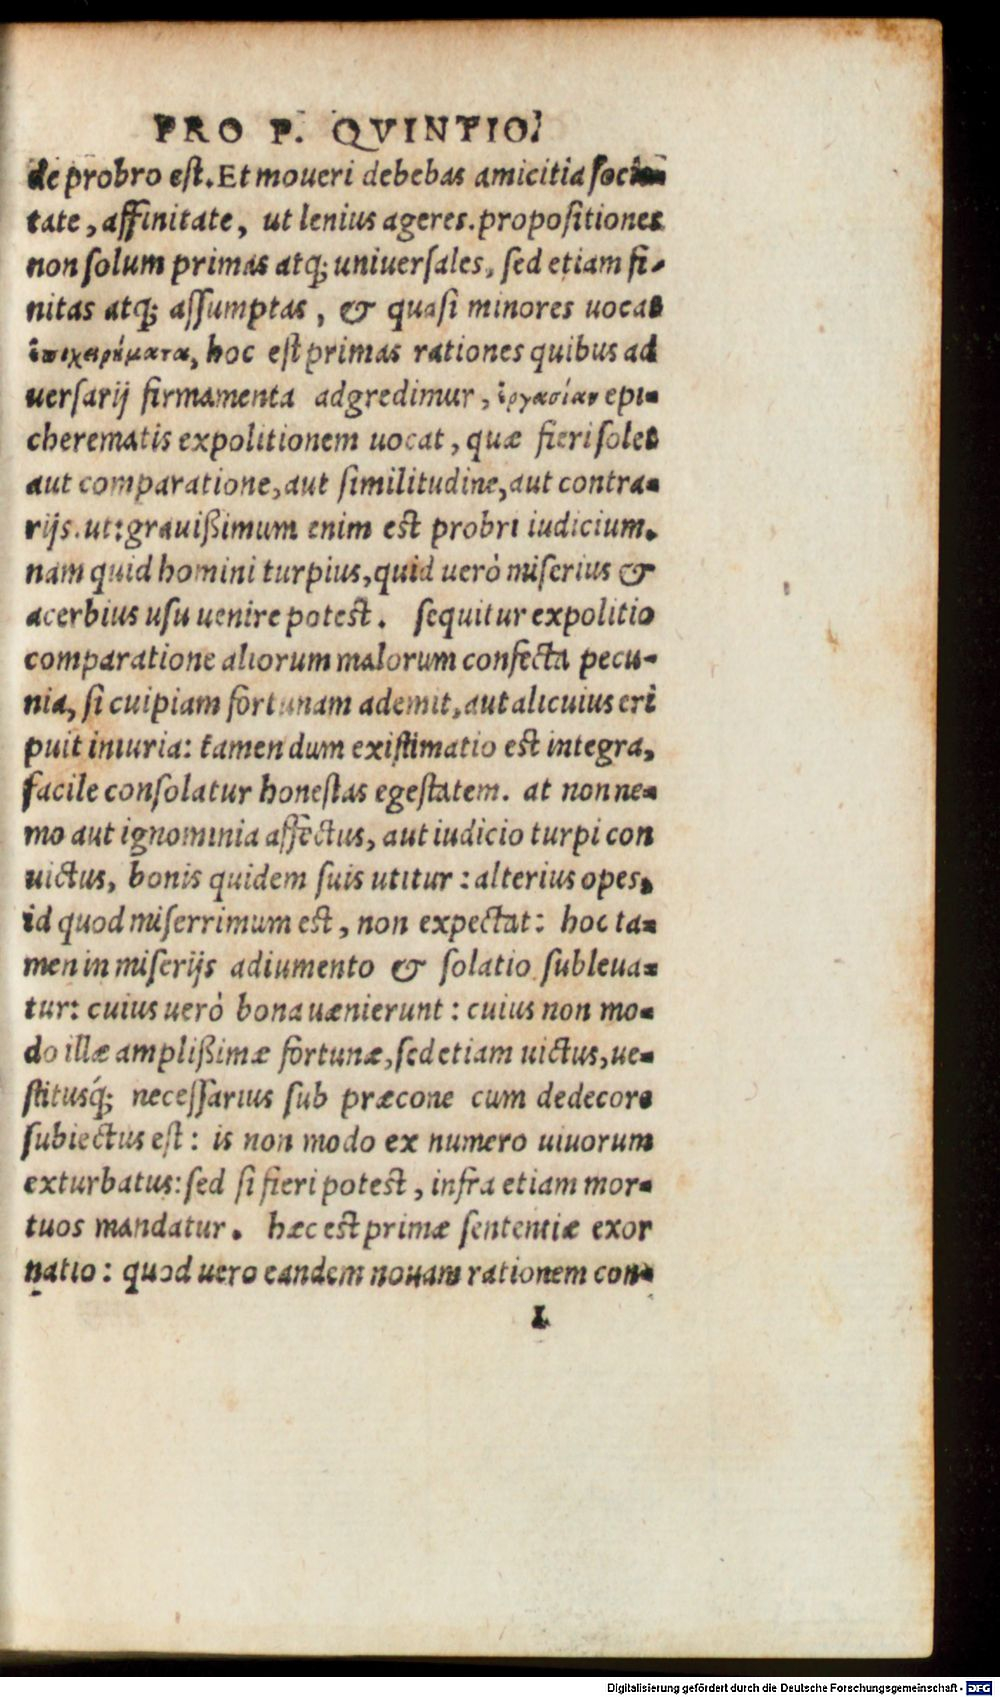 PRO P. QVINTIO.
de probro est. Et moueri debebas amicitia socie-
tate, affinitate, ut lenius ageres. propositiones
non solum primas atq; uniuersales, sed etiam fi-
nitas atq; assumptas, & quasi minores uocat
ἐπιχειρήματα, hoc est primas rationes quibus ad
uersarij firmamenta adgredimur, ἐργασίαν epi-
cherematis expolitionem uocat, quæ fieri solet
aut comparatione, aut similitudine, aut contra-
rijs. ut: grauißimum enim est probri iudicium.
nam quid homini turpius, quid uerò miserius &
acerbius usu uenire potest. sequitur expolitio
comparatione aliorum malorum confecta pecu-
nia, si cuipiam fortunam ademit, aut alicuius eri
puit iniuria: tamen dum existimatio est integra,
facile consolatur honestas egestatem. at nonne-
mo aut ignominia affectus, aut iudicio turpi con
uictus, bonis quidem suis utitur: alterius opes,
id quod miserrimum est, non expectat: hoc ta-
men in miserijs adiumento & solatio subleua-
tur: cuius uerò bona uænierunt: cuius non mo-
do illæ amplißimæ fortunæ, sed etiam uictus, ue-
stitusq́; necessarius sub præcone cum dedecore
subiectus est: is non modo ex numero uiuorum
exturbatus: sed si fieri potest, infra etiam mor-
tuos mandatur. hæc est primæ sententiæ exor
natio: quod uero eandem nouam rationem con-
I
Digitalisierung gefördert durch die Deutsche Forschungsgemeinschaft - DFG